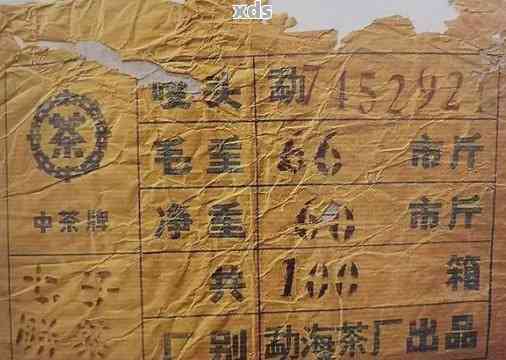 xds
唛头 勐7452921
毛重 66 市斤
净重 60 市斤
中茶牌
茶
共 100 箱
七子
饼茶
厂别 勐海茶厂出品